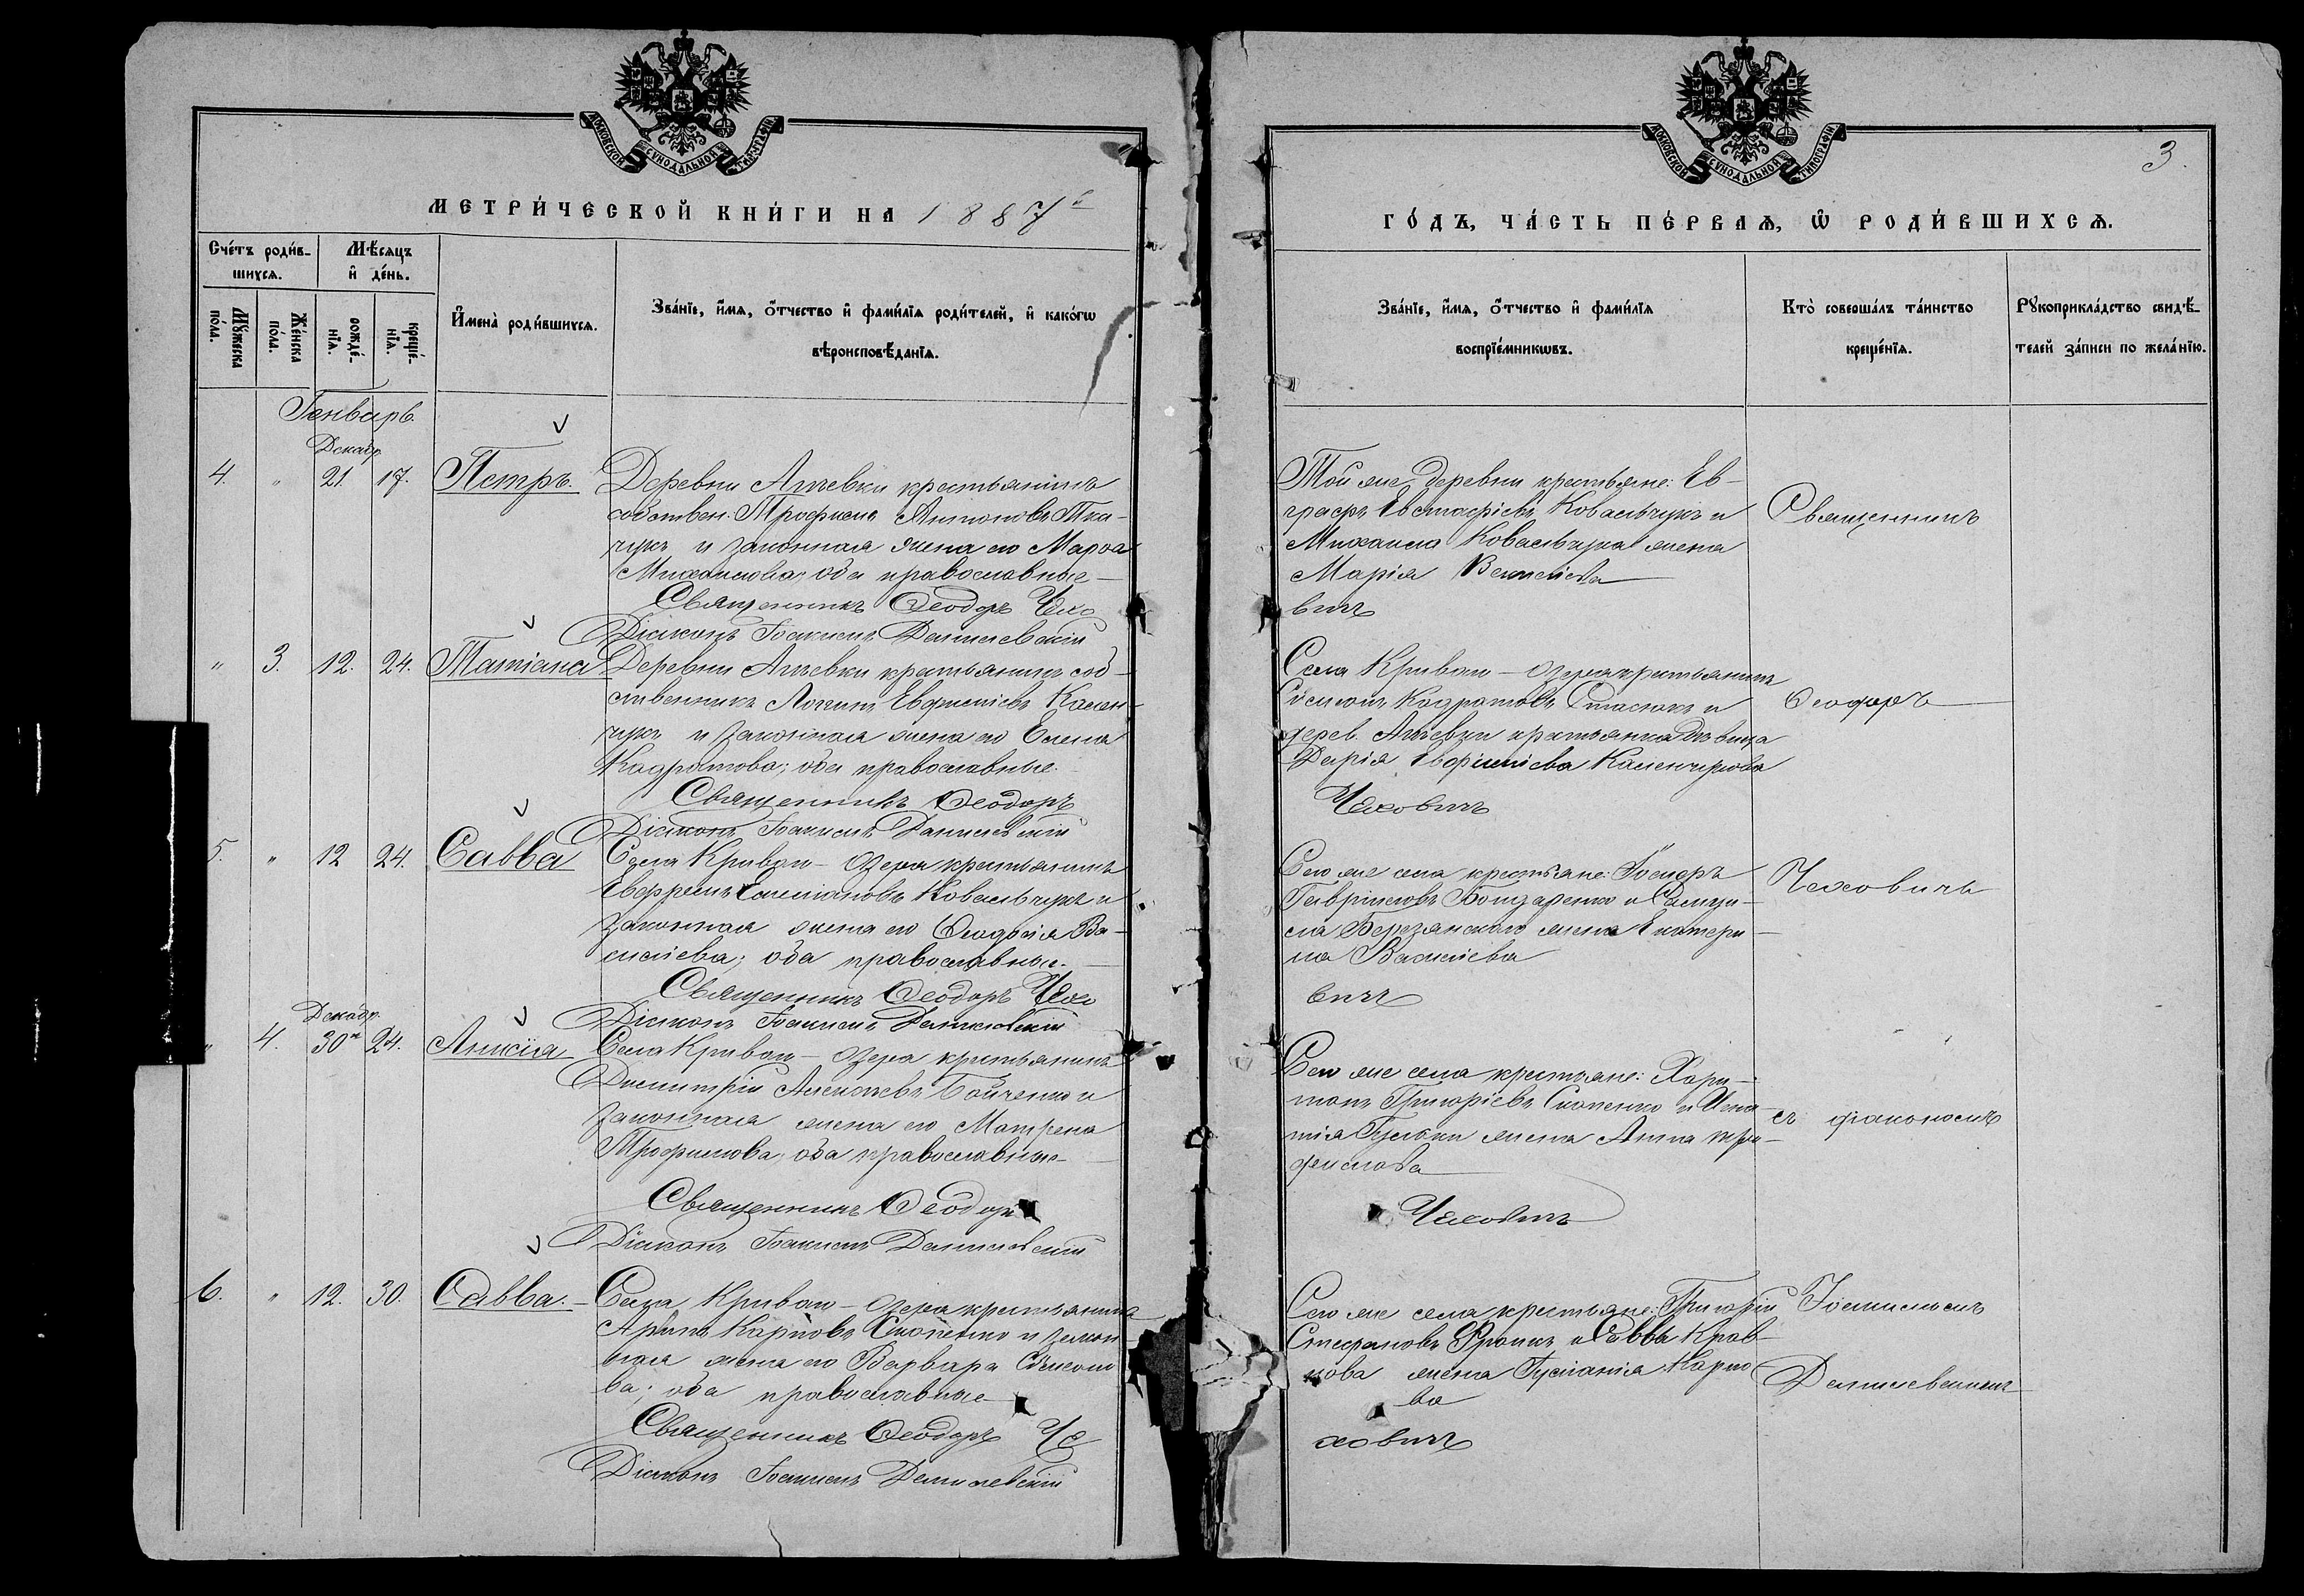 МОСКОВСКОЙ СУНОДАЛЬНОЙ ТИПОГРАФІИ
МЕТРИ́ЧЕСКОЙ КНИ́ГИ НА 1887й
Сче́тъ роди́в-
шихсѧ.
Мѣ́сѧцъ
и҆ де́нь.
Мꙋ́жеска
по́ла.
Же́нска
по́ла.
рожде́-
нїѧ.
креще́-
нїѧ.
И҆мена̀ роди́вшихсѧ.
Зва́нїе, и҆́мѧ, о҆́тчество и҆ фами́лїѧ роди́телей, и҆ како́гѡ
вѣроисповѣ́данїѧ.
Генварь.
Декабр.
4. " 21. 17. Петръ.
Деревни крестьянинъ
собствен: Трофимъ Антоновъ Тка-
чукъ и законная жена его Марѳа
Михаилова; оба православные
Священникъ Ѳеодоръ Чехо
Діаконъ Іоакимъ Данилевскій
" 3. 12. 24. Татіана
Деревни крестьянинъ соб-
ственникъ Логинъ Евфиміевъ Кален-
чукъ и законная жена его Елена
Кодратова; оба православные.
Священникъ Ѳеодоръ
Діаконъ Іоакимъ Данилевскій
5. " 12 24. Савва
Села Криваго-Озера крестьянинъ
Евфремъ Ковальчукъ и
законная жена его Ѳеодосія Ва-
силіева; оба православные.
Священникъ Ѳеодоръ Чехо
Діаконъ Іоакимъ Данилевскій
Декабр.
" 4. 30го 24. Анисія
Села Криваго-Озера крестьянинъ
Димитрій Алексѣевъ Бойченко и
законная жена его Матрена
Трофимова; оба православные
Священникъ Ѳеодоръ
Діаконъ Іоакимъ Данилевскій
6. " 12. 30. Савва.
Села Криваго-Озера крестьянинъ
Карповъ Скопенко и закон-
ная жена его Варвара Сѵмеоно
ва; оба православные
Священникъ Ѳеодоръ Че
Діаконъ Іоакимъ Данилевскій
МОСКОВСКОЙ СУНОДАЛЬНОЙ ТИПОГРАФІИ
3.
ГО́ДЪ, ЧА́СТЬ ПЕ́РВАѦ, Ѡ҆ РОДИ́ВШИХСѦ.
Зва́нїе, и҆́мѧ, о҆́тчество и҆ фами́лїѧ
воспрїе́мникѡвъ.
Кто̀ соверша́лъ та́инство
креще́нїѧ.
Рꙋкоприкла́дство свидѣ́-
телей за́писи по жела́нїю.
Той же деревни крестьяне: Ев-
графъ Евстафіевъ Ковальчукъ и
Михаила Ковальчука жена
Марія
вичъ
Священникъ
Села Криваго-Озера крестьянинъ
Сѵмеонъ Кодратовъ Стасюкъ и
дерев. крестьянка дѣвица
Дарія Евфиміева Каленчукова
Чеховичъ
Ѳеодоръ
Сего же села крестьяне:
Гавріиловъ Бондаренко и Самуи-
ла Березянскаго жена Екатери-
на Василіева
вичъ
Чеховичъ
Сего же села крестьяне: Хари-
тонъ Григоріевъ Скопенко и Игна-
тія жена Анна Тро-
фимова
Чеховичъ
съ діакономъ
Сего же села крестьяне: Григорій
Стефановъ и Савва Крав-
цова жена Карпо
ва
ховичъ
Іоакимомъ
Данилевскимъ